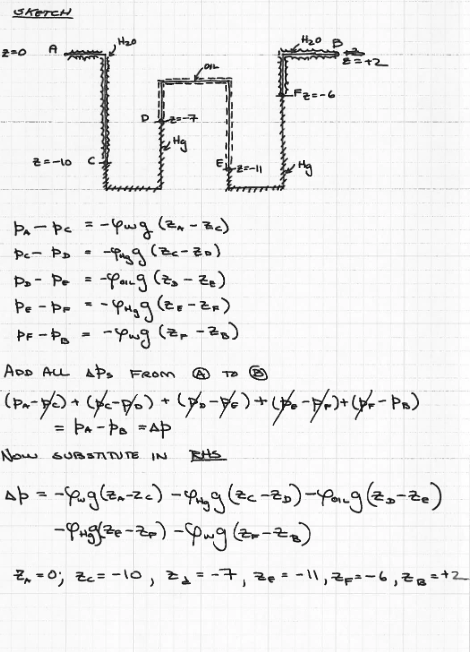 SKETCH
z=0 A H2O H2O B z=+2
OIL
F z=-6
D z=-7
Hg
z=-10 C E z=-11 Hg
pA - pC = -φwg (zA - zC)
pC - pD = -φHgg (zC - zD)
pD - pE = -φOILg (zD - zE)
pE - pF = -φHgg (zE - zF)
pF - pB = -φwg (zF - zB)
ADD ALL Δps FROM Ⓐ TO Ⓑ
(pA-pC) + (pC-pD) + (pD-pE) + (pE-pF) + (pF-pB)
= pA - pB = Δp
NOW SUBSTITUTE IN RHS
Δp = -φwg(zA-zC) -φHgg(zC-zD) -φOILg(zD-zE)
-φHgg(zE-zF) -φwg(zF-zB)
zA=0; zC=-10, zd=-7, zE=-11, zF=-6, zB=+2